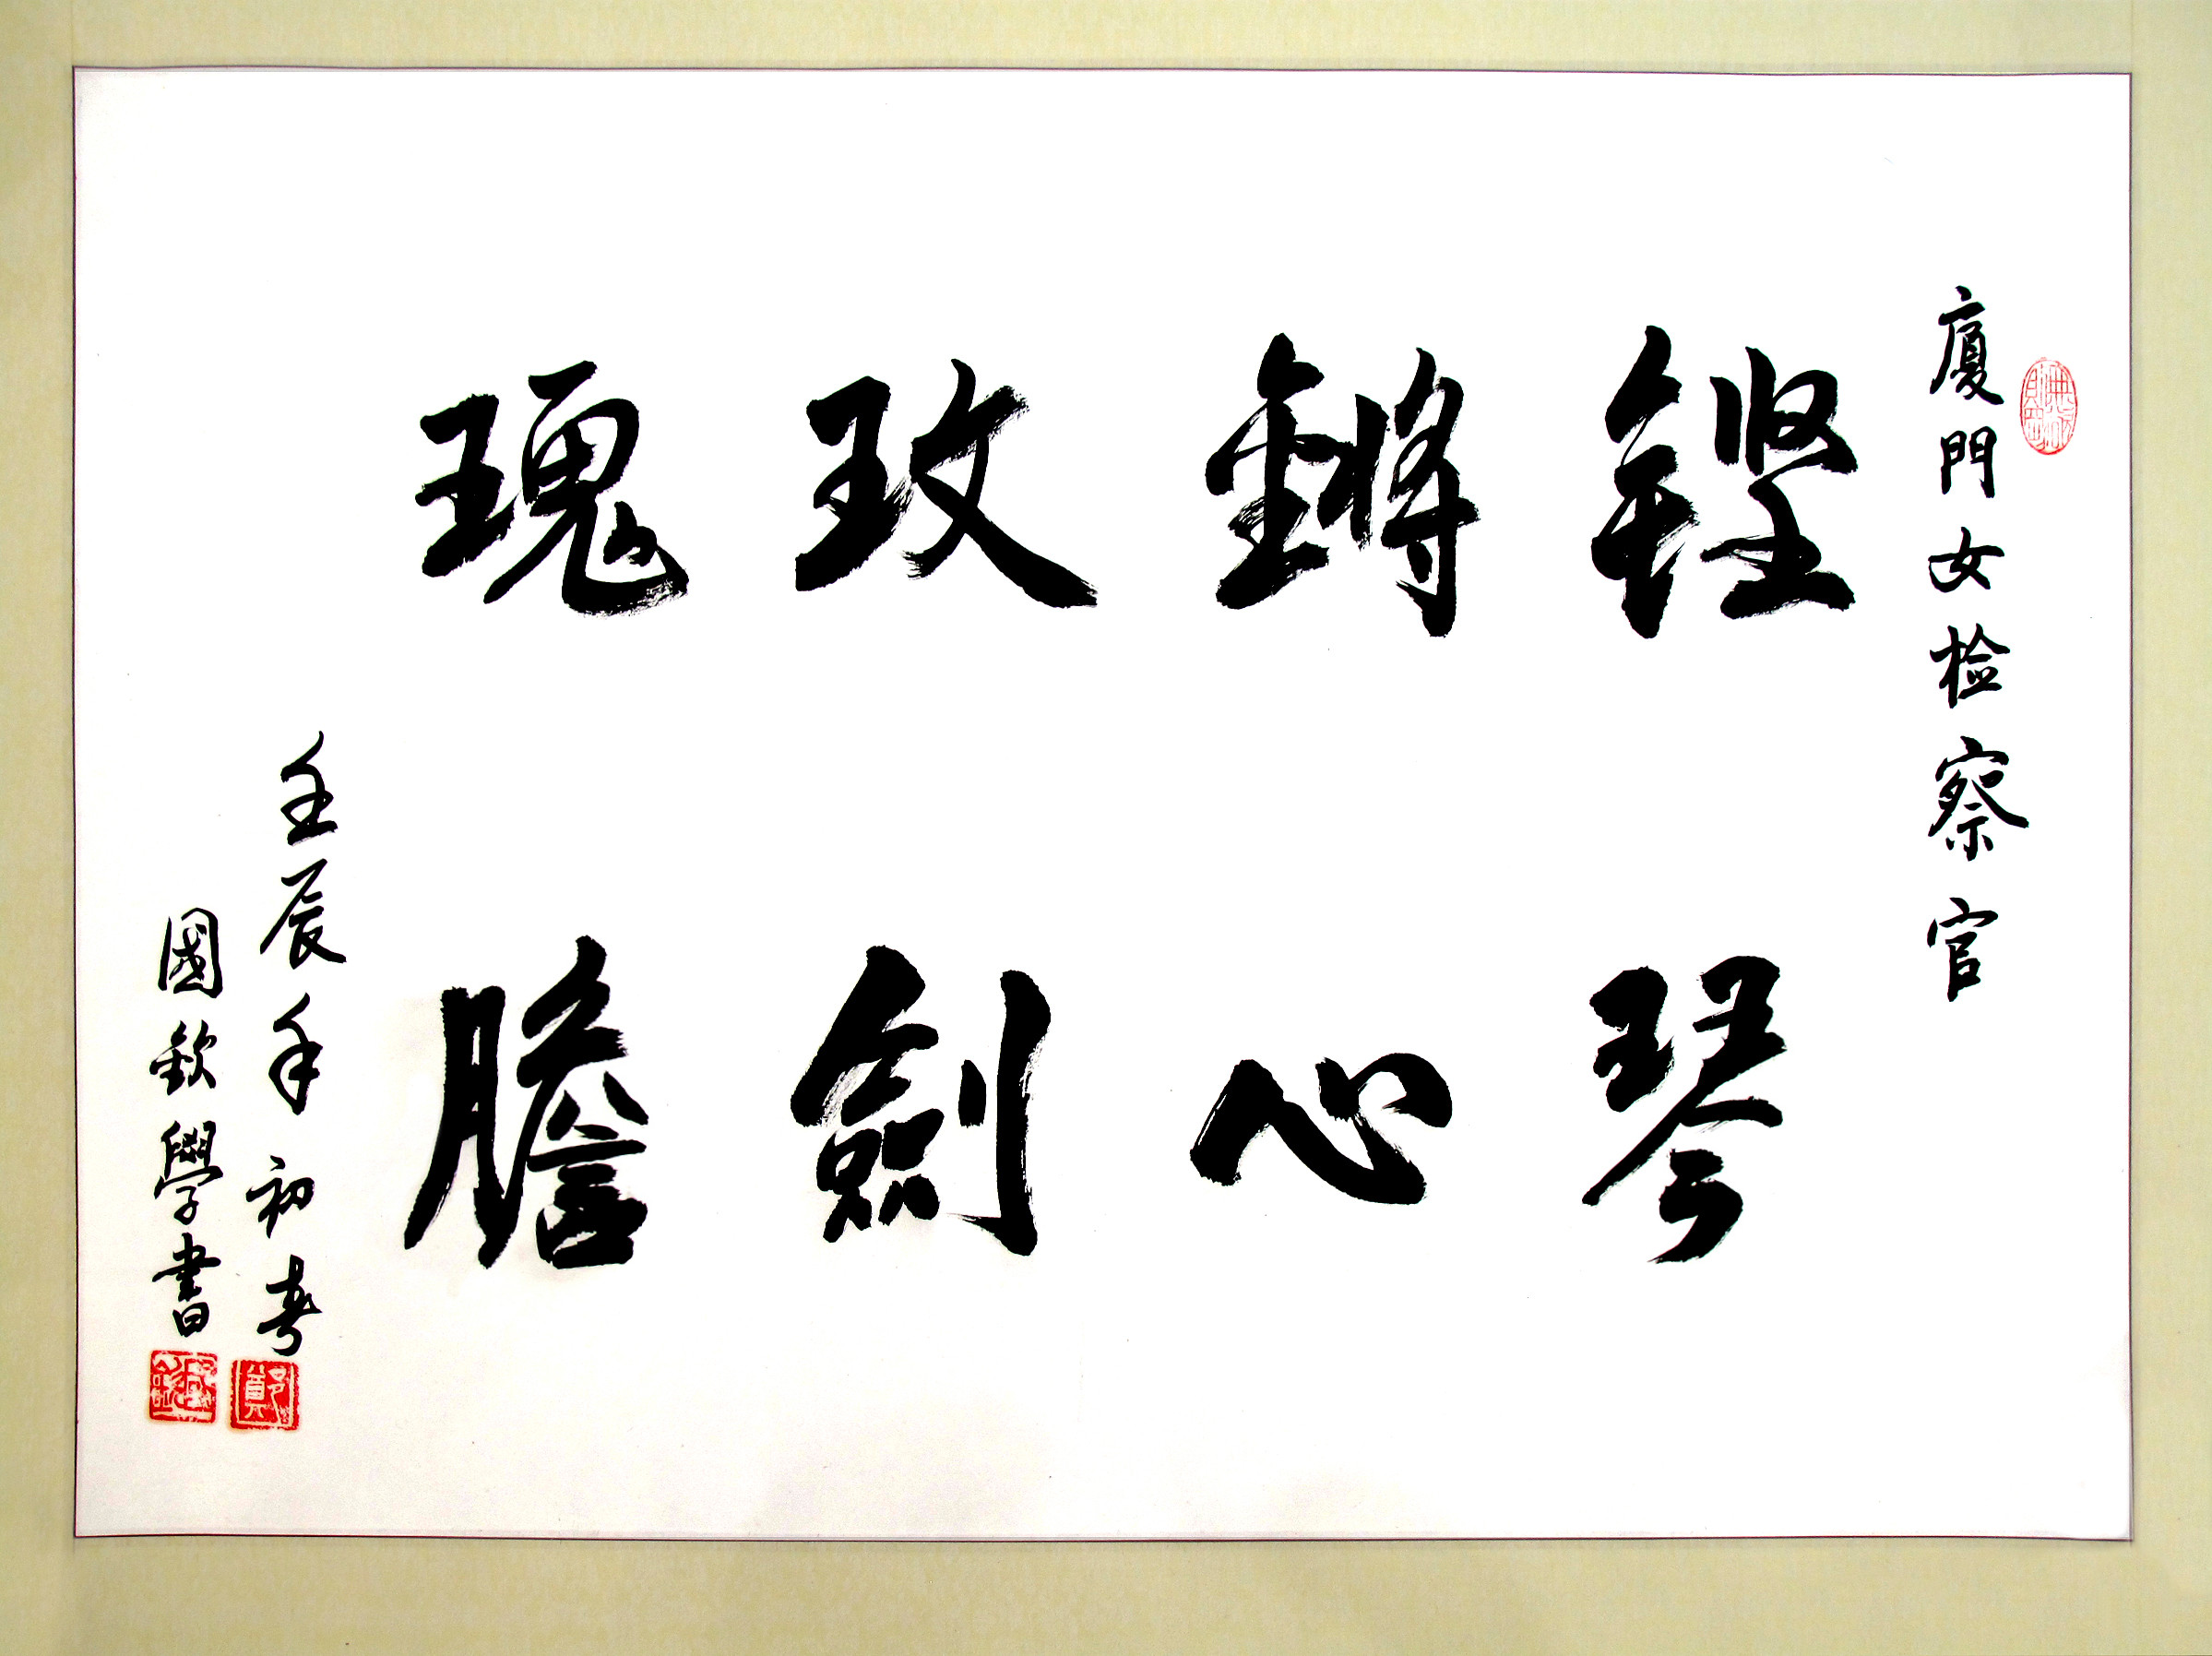 廈門女检察官
铿鏘玫瑰
琴心劍膽
壬辰年初春
國欽學書
鄭